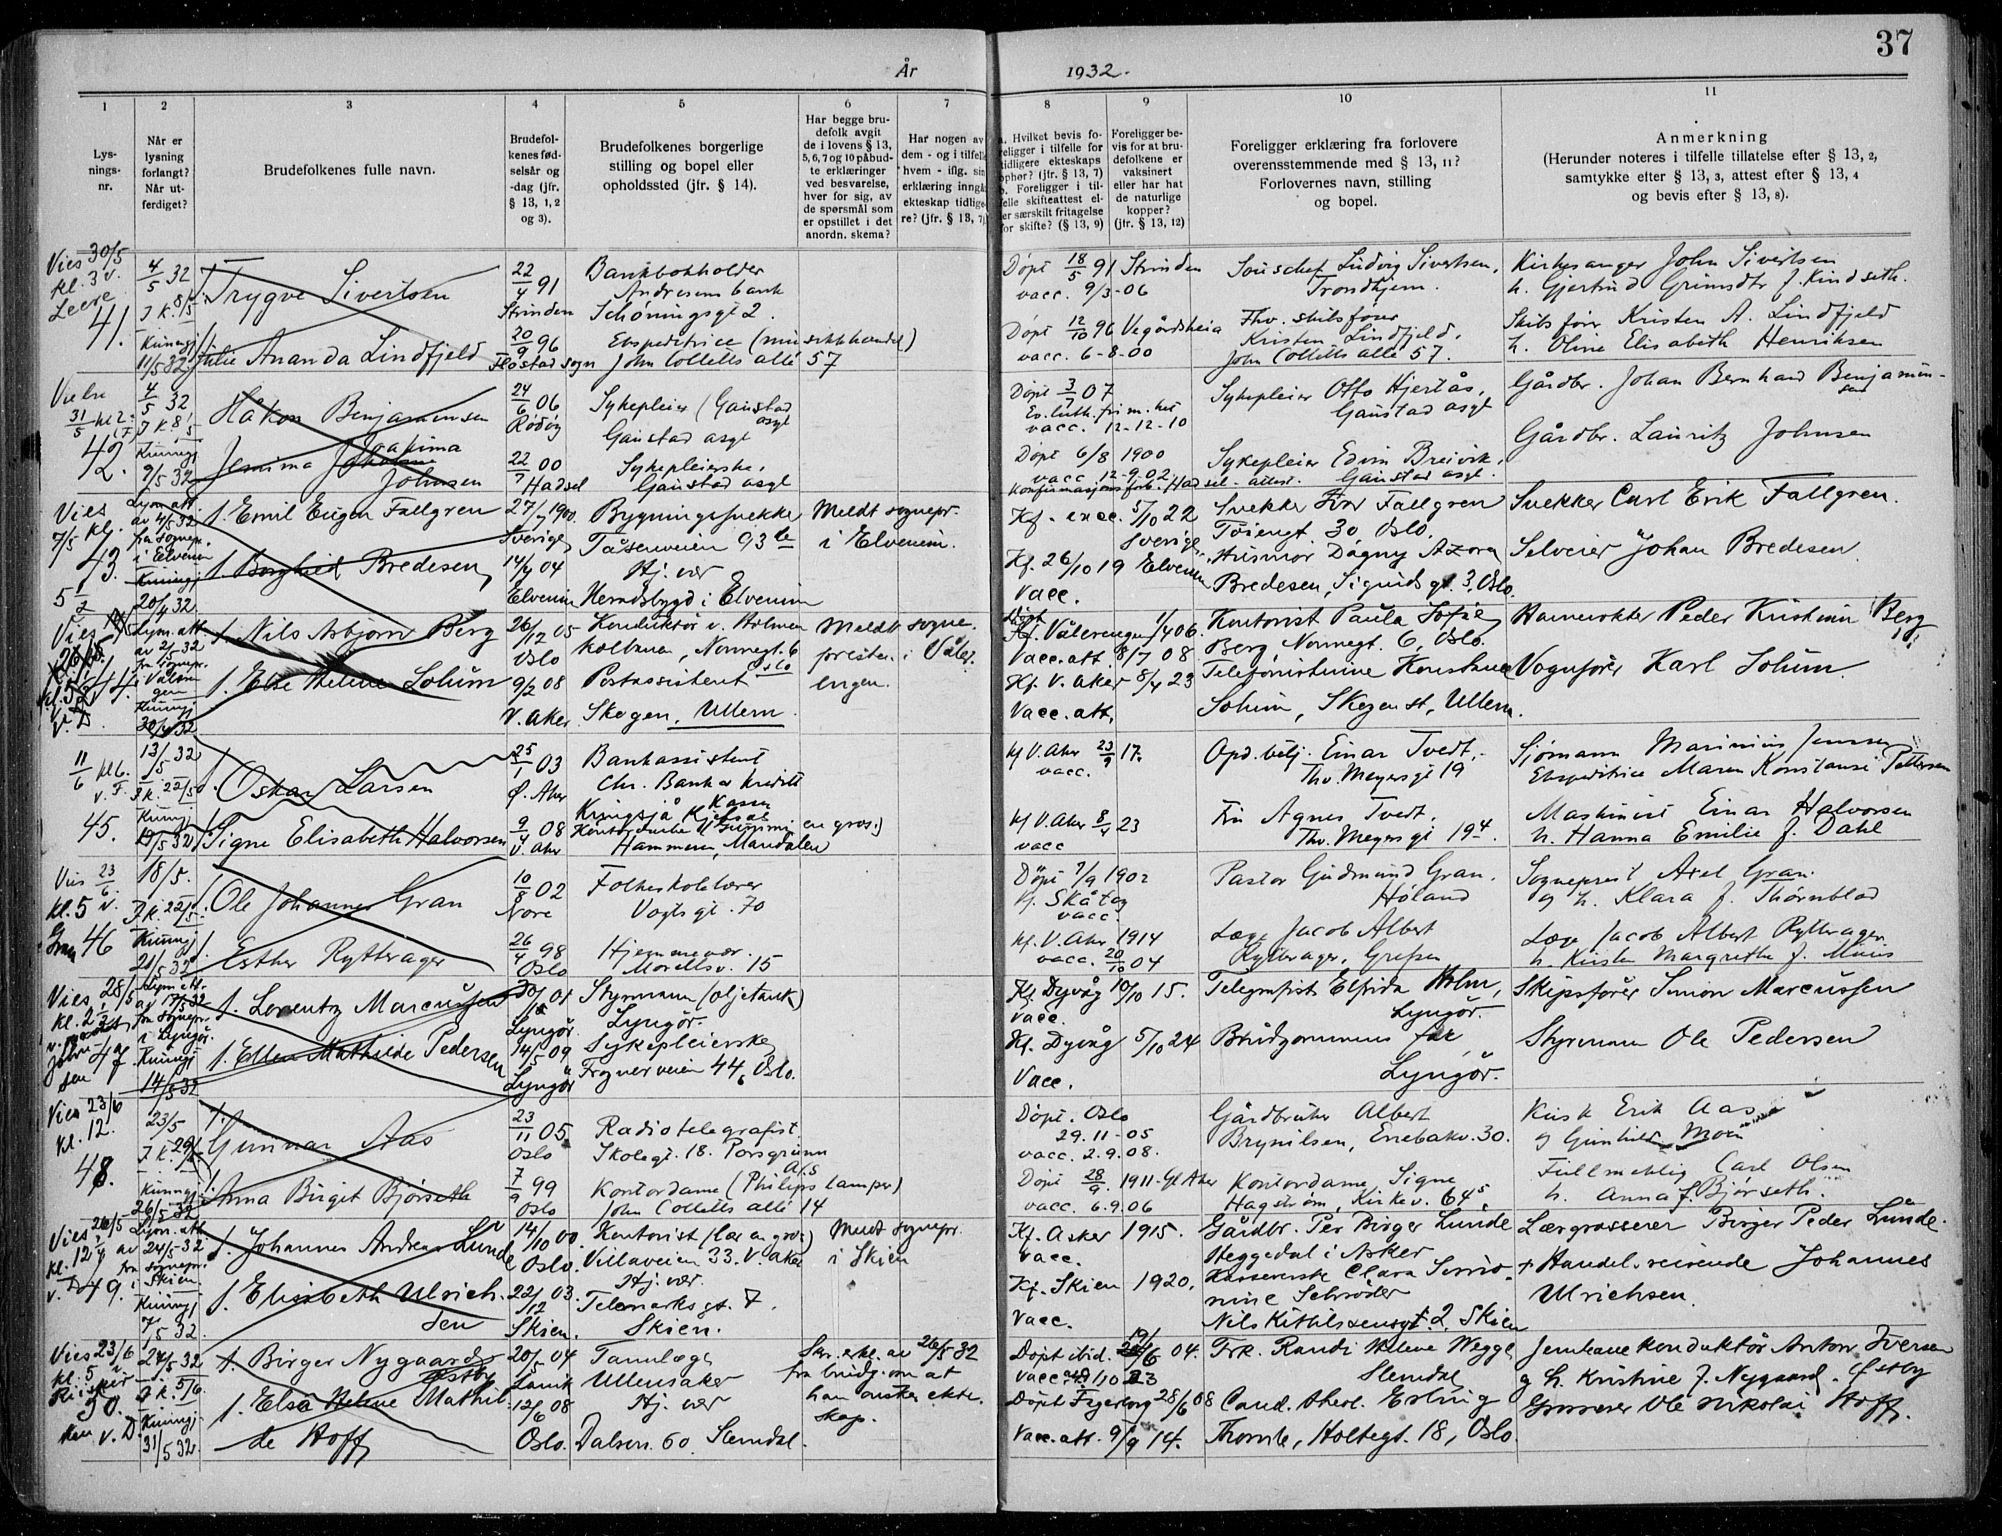 37
År 1932.
1 2 3 4 5 6 7 8 9 10 11
Lysnings-
nr.
Når er
lysning
forlangt?
Når ut-
ferdiget?
Brudefolkenes fulle navn.
Brudefol-
kenes fød-
selsår og
-dag (jfr.
§ 13, 1, 2
og 3).
Brudefolkenes borgerlige
stilling og bopel eller
opholdssted (jfr. § 14).
Har begge bru-
defolk avgit
de i lovens § 13,
5, 6, 7 og 10 påbud-
te erklæringer
ved besvarelse,
hver for sig, av
de spørsmål som
er opstillet i det
anordn. skema?
Har nogen av
dem - og i tilfelle
hvem - iflg. sin
erklæring inngåt
ekteskap tidlige-
re? (jfr. § 13, 7)
a. Hvilket bevis fo-
religger i tilfelle for
tidligere ekteskaps
ophør? (jfr. § 13, 7)
b. Foreligger i til-
felle skifteattest el-
ler særskilt fritagelse
for skifte? (§ 13, 9)
Foreligger be-
vis for at bru-
defolkene er
vaksinert
eller har hat
de naturlige
kopper?
(jfr. § 13, 12)
Foreligger erklæring fra forlovere
overensstemmende med § 13, 11?
Forlovernes navn, stilling
og bopel.
Anmerkning
(Herunder noteres i tilfelle tillatelse efter § 13, 2,
samtykke efter § 13, 3, attest efter § 13, 4
og bevis efter § 13, 8).
Vies 30/5
kl. 3 v.
41.
4/5 32
J k. 8/5
Kunngj
11/5 32
Trygve Sivertsen
22/4 91
Strinden
Bankbokholder
Andresens bank
Schøningsgt 2.
Døpt 18/5 91 Strinden
vacc. 9/3-06
Souschef Ludvig Sivertsen,
Trondhjem.
Kirkesanger John Sivertsen
h. Gjertrud Grimsdtr f. Kindseth.
Julie Ananda Lindfjeld
20/9 96
Flostad sogn
Ekspeditrice (musikkhandel)
John Colletts allé 57
Døpt 12/10 96 Vegårdsheia
vacc. 6-8-00
Fhv. skibsfører
Kristen Lindfjeld,
John Colletts allé 57.
Skibsfører Kristen A. Lindfjeld
h. Oline Elisabeth Henriksen
31/5
42.
4/5 32
J k. 8/5
Kunngj
9/5 32
Håkon Benjaminsen
24/6 06
Rødøy
Sykepleier (Gaustad
asyl
Gaustad asyl
Døpt 3/7 07
Ev. luth. frim.het
vacc. 12-12-10
Sykepleier Otto Hjertås,
Gaustad asyl
Gårdbr. Johan Bernhard Benjamin-
sen
Jemima Joakima
Johnsen
22/7 00
Hadsel
Sykepleierske,
Gaustad asyl
Døpt 6/8 1900
vacc. 12-9-02
Sykepleier Edvin Breivik,
Gaustad asyl.
Gårdbr. Lauritz Johnsen
Vies
7/5 kl.
43.
Lysn. att
av 4/5 32
fra sognepr.
i Elverum
Kunngj
20/4 32.
f. Emil Eugen Fallgren
27/7 1900
Sverige
Bygningssnekker
Tåsenveien 93
Meldt sognepr.
i Elverum.
Kf. vacc. 5/10 22
Sverige
Snekker Ivar Fallgren
Tøiengt. 30 Oslo.
Snekker Carl Erik Fallgren.
f. Borghild Bredesen
14/7 04
Elverum
Hj. vær
Herredsbygd i Elverum
Kf. 26/10 19 Elverum
Vacc.
Husmor Dagny Azora
Bredesen, Sigurdsgt. 3, Oslo.
Selveier Johan Bredesen
Vies
44.
Lysn. att.
av 2/5 32
fra sognepr.
i Våler-
engen
Kunngj
30/4 32
f. Nils Asbjørn Berg
26/12 05
Oslo
Konduktør v. Holmen
kolbanen, Normegt. 6
Oslo
Meldt sogne-
presten i Våler-
engen.
Døpt
Kf. Vålerengen 1/4 06.
Vacc. att. 8/7 08
Kontorist Paula Sofie
Berg, Normegt. 6, Oslo.
Havnevokter Peder Kristian Berg
f. Else Helene Solum
9/2 08
V. Aker
Postassistent
Skogen, Ullern.
Kf. V. Aker 8/4 23
Vacc. att.
Telefonistinne Konstanse
Solum, Skogen st, Ullern.
Vognfører Karl Solum.
11/6 kl 6.
v. F.
45.
13/5 32
J k. 22/5
Kunngj
19/5 32
f. Oskar Larsen
25/1 03
Ø. Aker
Bankassistent
Chr. Bank & Kreditk
Kasse
Kf V. Aker 23/9 17.
vacc.
Opd. betj. Einar Tvedt,
Thv. Meyersgt 19
Sjømann Marinius Jenssen
Ekspeditrice Maren Konstanse Pettersen
Signe Elisabeth Halvorsen
9/4 08
V. Aker
Kontordame (Gummi en gros.)
Hammeren, Maridalen
Kf V. Aker 8/4 23
vacc
Fru Agnes Tvedt,
Thv. Meyersgt 19⁴.
Maskinist Einar Halvorsen
h. Hanna Emilie f. Dahl
Vies 23/6
kl. 5 v.
Gran 46
18/5.
J. k. 22/5.
Kunngj
21/5 32
Ole Johannes Gran
10/8 02
Nore
Folkeskolelærer
Vogtsgt. 70
Døpt 7/9 1902
vacc.
Pastor Gudmund Gran.
Høland
Sogneprest Axel Gran.
og h. Klara f. Thørnblad
Esther Rytterager
26/4 98
Oslo
Hjemmevær.
Morellsv. 15
Kf. V. Aker 1914
vacc. 20/10 04
Læge Jacob Albert
Rytterager, Grefsen
Læge Jacob Albert Rytterager
h. Kirsten Margrethe f.
Vies 28/5
47
Lysn. att.
av 17/5 32
fra sognepr.
i Lyngør.
Kunngj
14/5 32
f. Lorentz Marcussen
Lyngør.
Styrmann (oljetank)
Lyngør.
Kf. Dypvåg 10/10 15.
vacc.
Telegrafist Elfrida Holm,
Lyngør.
Skipsfører Simon Marcussen
f. Ellen Mathilde Pedersen
14/5 09
Lyngør
Sykepleierske
Frognerveien 44, Oslo.
Kf. Dypvåg 5/10 24
Vacc.
Brudgommens far
Lyngør.
Styrmann Ole Pedersen
Vies 23/6
kl. 12.
48.
23/5
J. k. 29/5
Kunngj
26/5 32
Gunnar Aas
23/11 05.
Oslo
Radiotelegrafist
Skolegt. 18. Porsgrunn
Døpt. Oslo
29.11-05
vacc. 2.9.08.
Gårdbruker Albert
Brynilsen, Enebakv. 30.
Kusk Erik Aas
og Gunhild Moen
Anna Birgit Bjørseth
7/9 99
Oslo
Kontordame (Philips lamper)
A/S
John Colletts allé 14
Døpt 28/9. 1911-Gl Aker
vacc. 6.9.06
Kontordame Signe
Hagstrøm, Kirkev. 64⁵
Fullmektig Carl Olsen
h. Anna f. Bjørseth.
Vies 26/5
kl. 12
49.
Lysn. att.
av 24/5 32
fra sognepr.
i Skien.
Kunngj
7/5 32.
f. Johannes Andreas Lunde
14/10 00.
Oslo.
Kontorist (lær en gros)
Villaveien 33. V. Aker
Meldt sognepr.
i Skien
Kf. Asker 1915.
vacc.
Gårdbr. Per Birger Lunde
Heggedal i Asker
Lærgrosserer Birger Peder Lunde.
f. Elisabeth Ulrich-
sen
22/12 03.
Skien.
Hj. vær.
Telemarksgt. 7.
Skien.
Kf. Skien 1920.
Vacc.
Kassererske Clara Severi-
nine Schrøder
Nils Kittilsensgt. 2, Skien
+ Handelsreisende Johannes
Ulrichsen.
Vies 23/6
kl. 5 v.
50.
v. D.
24/5 32
J k. 5/6.
Kunngj.
31/5 32.
f. Birger Nygaard
Østby
20/5 04
Tannlæge
Ullensaker
Skr. erkl. av 26/5 32
fra brudg. om at
han ønsker ekte-
skap.
Døpt ibid. 19/6 04.
Frk. Randi Helene Wegge
Slemdal
Jernbanekonduktør Anton Iversen
og h. Kristine f. Nygaard. Østby
f. Elsa Helene Mathil-
de Hoff
12/6 08
Oslo.
Hj. vær
Dalsvn. 60. Slemdal.
Døpt Fagerborg 28/6 08
Vacc. att. 9/9 14.
Cand. theol. Erling
Thomle, Holtegt. 18, Oslo.
Grosserer Ole Nikolai Hoff.